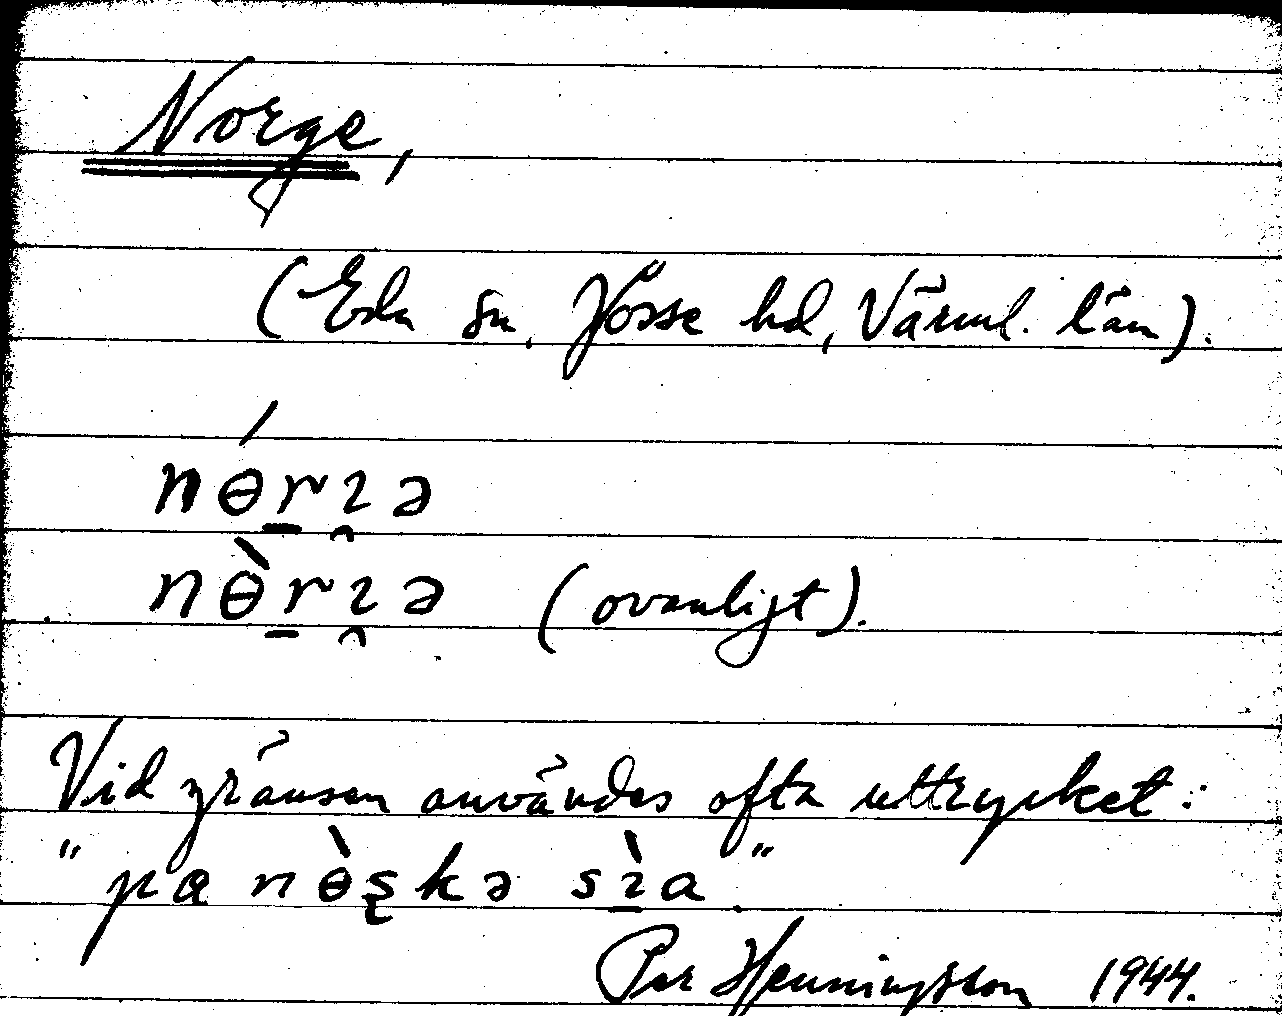 Norge,
(Eda sn, Jösse hd, Värml. län).
nɵ́r̠ɿ̯ə
nɵ̀r̠ɿ̯ə (ovanligt).
Vid gränsen användes ofta uttrycket:
"pa nɵ̀ʂkə sɿ̠̀a".
Per Henningsson 1944.